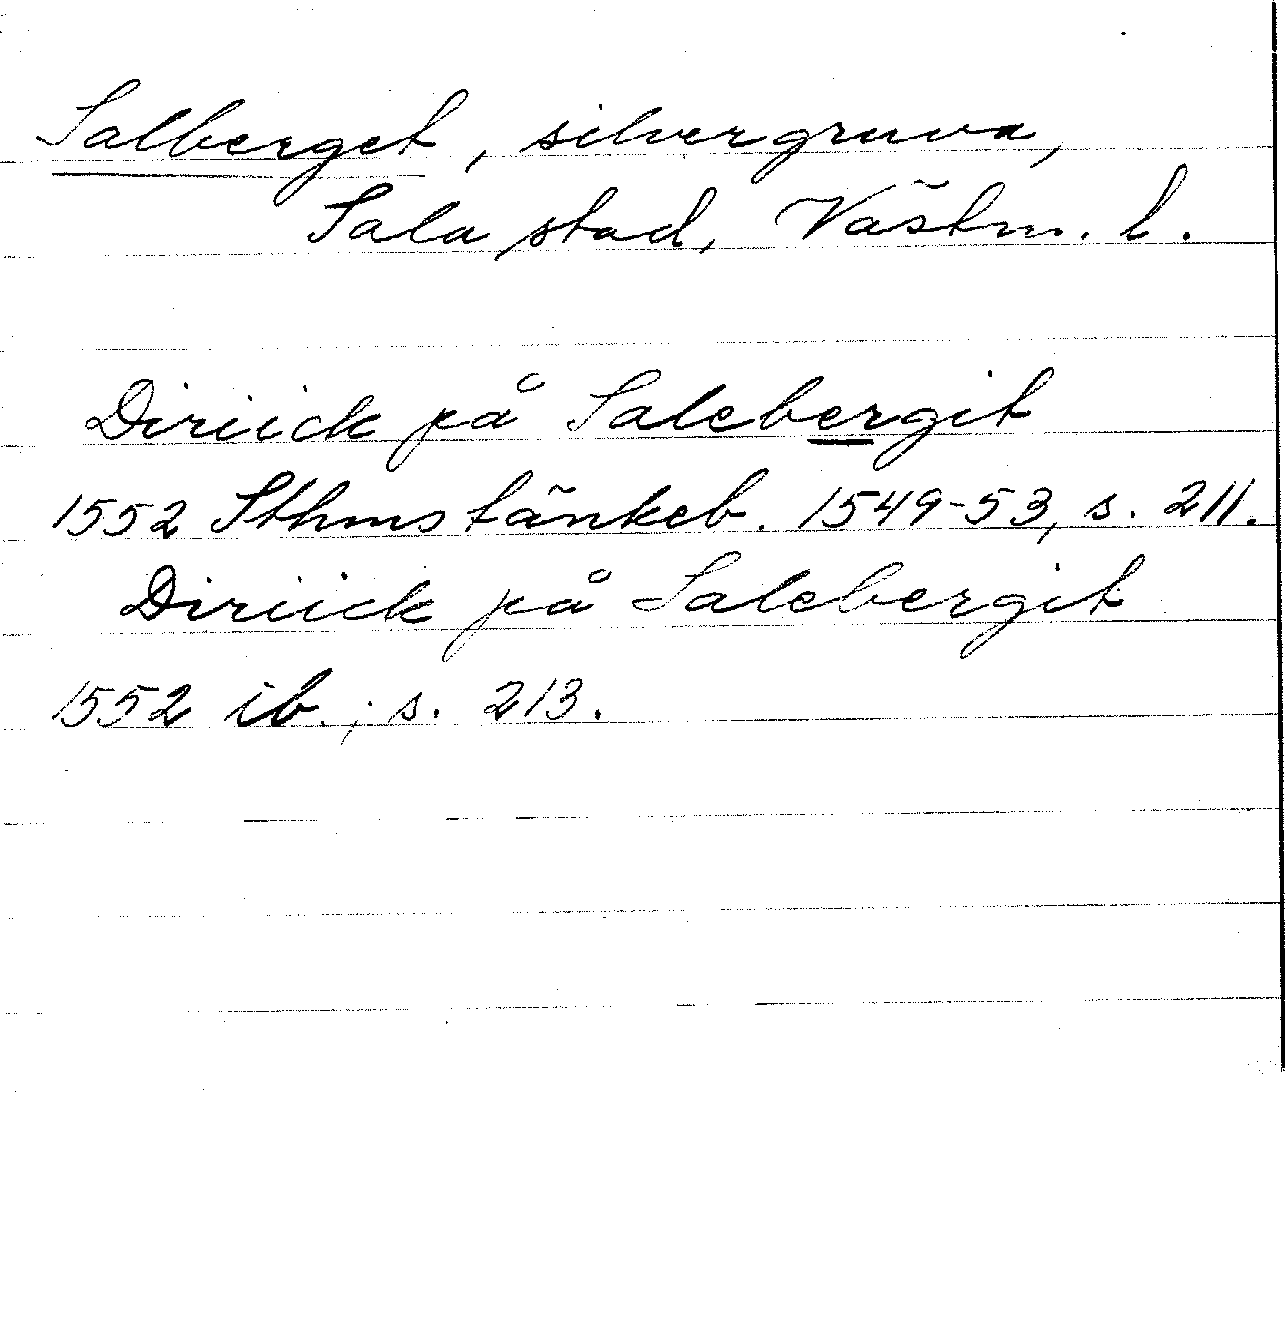 Salberget, silvergruva,
Sala stad, Västm. l.
Diriick på Salebergit
1552 Sthms tänkeb. 1549-53, s. 211.
Diriick på Salebergit
1552 ib., s. 213.